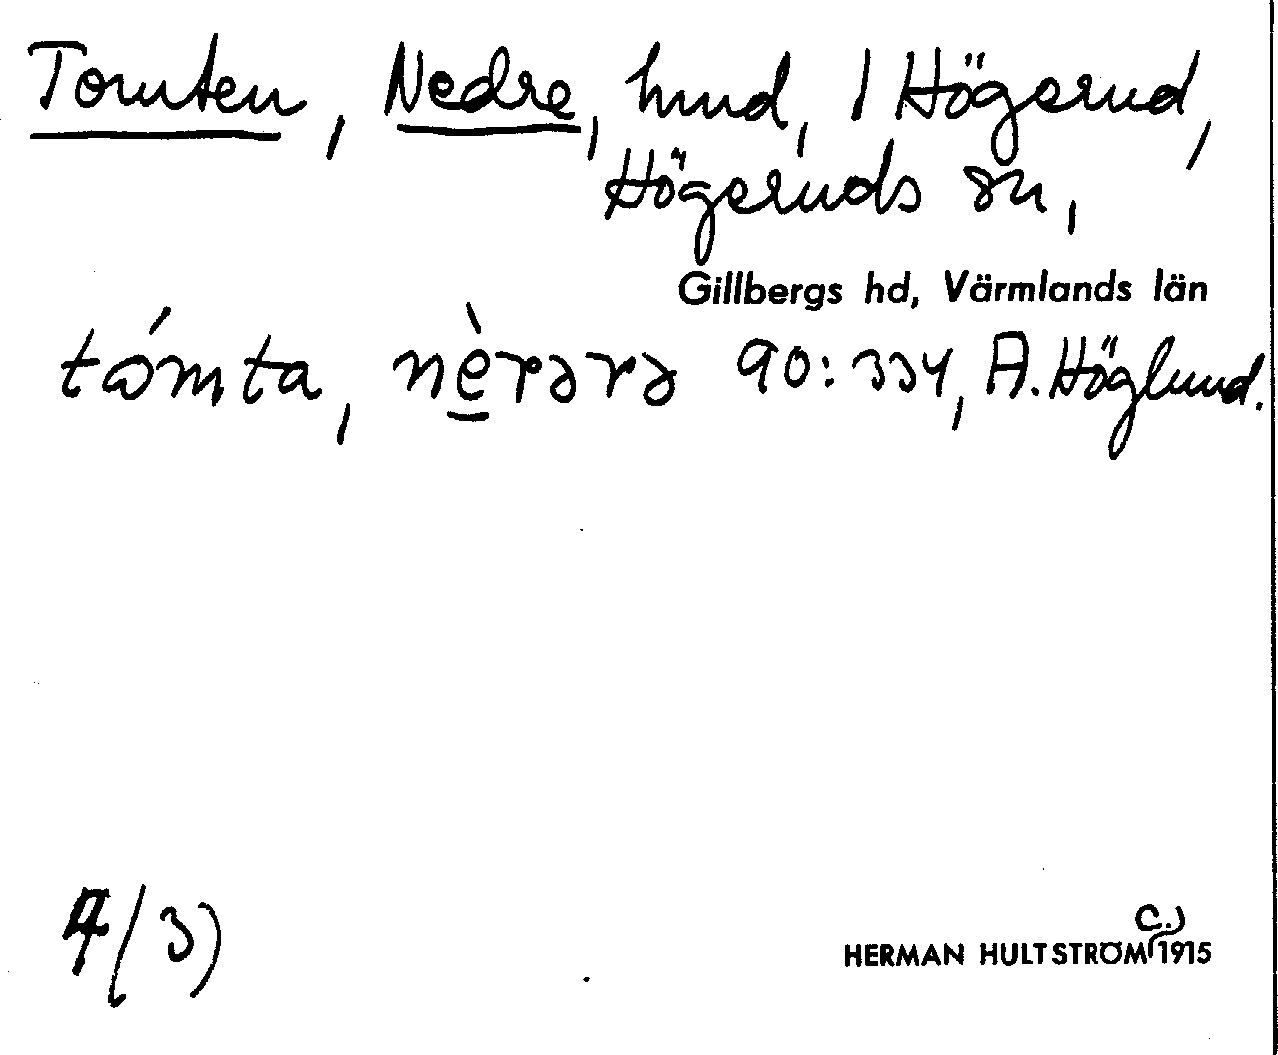 Tomten, Nedre, hmd, 1 Högerud,
Högeruds sn,
Gillbergs hd, Värmlands län
tómta, nè̱rərə 90:334, A. Höglund.
4(3)
HERMAN HULTSTRÖM (c.) 1915